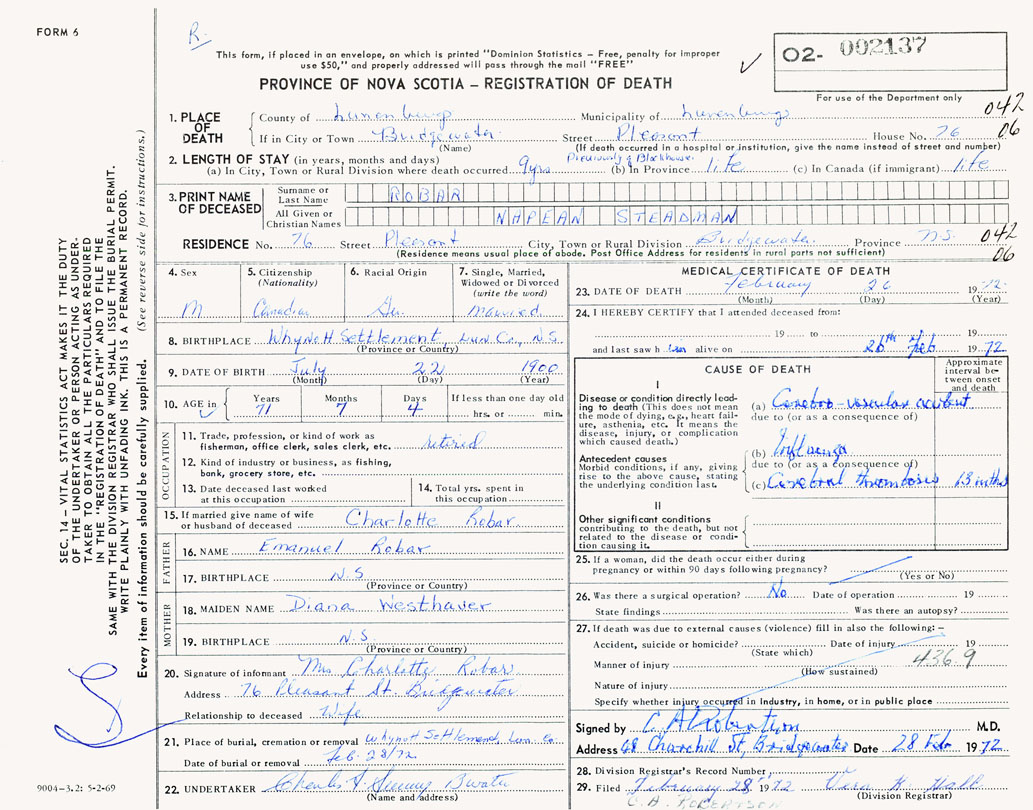 FORM 6
R.
This form, if placed in an envelope, on which is printed "Dominion Statistics – Free, penalty for improper
use $50," and properly addressed will pass through the mail "FREE"
PROVINCE OF NOVA SCOTIA – REGISTRATION OF DEATH
O2- 002137
For use of the Department only
1. PLACE OF DEATH
County of Lunenburg Municipality of Lunenburg 042
If in City or Town Bridgewater Street Pleasant House No. 76 06
(Name) (If death occurred in a hospital or institution, give the name instead of street and number)
2. LENGTH OF STAY (in years, months and days) Previously of Blockhouse
(a) In City, Town or Rural Division where death occurred 9yrs (b) In Province life (c) In Canada (if immigrant) life
3. PRINT NAME OF DECEASED
Surname or Last Name ROBAR
All Given or Christian Names NAPEAN STEADMAN
RESIDENCE No. 76 Street Pleasant City, Town or Rural Division Bridgewater Province N.S. 042
(Residence means usual place of abode. Post Office Address for residents in rural parts not sufficient) 06
4. Sex
M
5. Citizenship
(Nationality)
Canadian
6. Racial Origin
Ger
7. Single, Married,
Widowed or Divorced
(write the word)
Married
8. BIRTHPLACE Whynott Settlement, Lun Co., N.S.
(Province or Country)
9. DATE OF BIRTH July 22 1900
(Month) (Day) (Year)
10. AGE in Years 71 Months 7 Days 4 If less than one day old
hrs. or min.
OCCUPATION
11. Trade, profession, or kind of work as
fisherman, office clerk, sales clerk, etc. retired
12. Kind of industry or business, as fishing,
bank, grocery store, etc.
13. Date deceased last worked
at this occupation
14. Total yrs. spent in
this occupation
15. If married give name of wife
or husband of deceased Charlotte Robar
FATHER
16. NAME Emanuel Robar
17. BIRTHPLACE N.S.
(Province or Country)
MOTHER
18. MAIDEN NAME Diana Westhaver
19. BIRTHPLACE N.S.
(Province or Country)
20. Signature of informant Mrs Charlotte Robar
Address 76 Pleasant St. Bridgewater
Relationship to deceased Wife
21. Place of burial, cremation or removal Whynot Settlement, Lun. Co.
Date of burial or removal Feb. 28/72
22. UNDERTAKER Charles B'water
(Name and address)
MEDICAL CERTIFICATE OF DEATH
23. DATE OF DEATH February 26 1972
(Month) (Day) (Year)
24. I HEREBY CERTIFY that I attended deceased from:
19 to 19
and last saw h im alive on 26th Feb 1972
CAUSE OF DEATH
Approximate
interval be-
tween onset
and death
I
Disease or condition directly lead-
ing to death (This does not mean
the mode of dying, e.g., heart fail-
ure, asthenia, etc. It means the
disease, injury, or complication
which caused death.)
(a) Cerebro-vascular accident
due to (or as a consequence of)
Antecedent causes
Morbid conditions, if any, giving
rise to the above cause, stating
the underlying condition last.
(b) Influenza
due to (or as a consequence of)
(c) Cerebral thrombosis 13 mths
II
Other significant conditions
contributing to the death, but not
related to the disease or condi-
tion causing it.
25. If a woman, did the death occur either during
pregnancy or within 90 days following pregnancy?
(Yes or No)
26. Was there a surgical operation? No Date of operation 19
State findings Was there an autopsy?
27. If death was due to external causes (violence) fill in also the following: –
Accident, suicide or homicide? Date of injury 19
(State which) 436.9
Manner of injury
(How sustained)
Nature of injury
Specify whether injury occurred in industry, in home, or in public place
Signed by C A Robertson M.D.
Address 48 Churchill St, Bridgewater Date 28 Feb 1972
28. Division Registrar's Record Number
29. Filed February 28, 1972 Vera K. Hall
(Division Registrar)
C. A. ROBERTSON
SEC. 14 – VITAL STATISTICS ACT MAKES IT THE DUTY
OF THE UNDERTAKER OR PERSON ACTING AS UNDER-
TAKER TO OBTAIN ALL THE PARTICULARS REQUIRED
IN THE "REGISTRATION OF DEATH" AND TO FILE THE
SAME WITH THE DIVISION REGISTRAR WHO SHALL ISSUE THE BURIAL PERMIT.
WRITE PLAINLY WITH UNFADING INK. THIS IS A PERMANENT RECORD.
Every item of information should be carefully supplied. (See reverse side for instructions.)
9004-3.2: 5-2-69